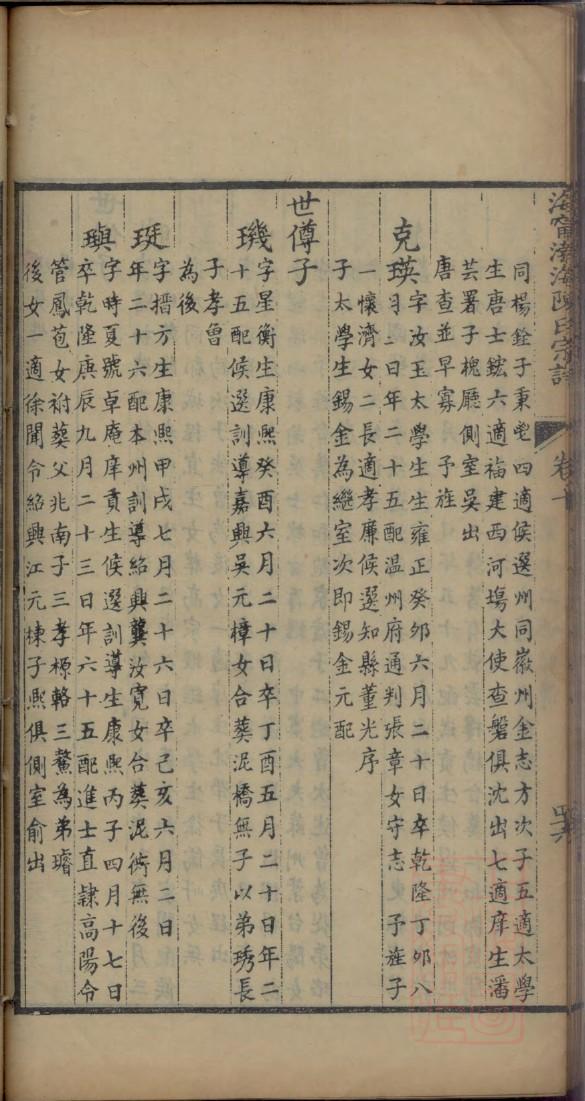 海寧渤海陳氏宗譜
卷十
同楊銓子秉 四適候選州同徽州金志方次子五適太學
生唐士鋐六適福建西河場大使查磐俱沈出七適庠生潘
芸署子槐廳側室吳出
唐查並早寡 予旌
克瑛
字汝玉太學生生雍正癸卯六月二十日卒乾隆丁卯八
月二日年二十五配温州府通判張章女守志 予旌子
一懷濟女二長適孝廉候選知縣董光序
子太學生錫金為繼室次即錫金元配
世傅子
璣
字星衡生康熙癸酉六月二十日卒丁酉五月二十日年二
十五配候選訓導嘉興吳元樟女合葬泥橋無子以弟琇長
子孝曾
為後
珽
字搢方生康熙甲戌七月二十六日卒己亥六月二日
年二十六配本州訓導紹興龔汝寬女合葬泥衖無後
璵
字時夏號卓庵庠貢生候選訓導生康熙丙子四月十七日
卒乾隆庚辰九月二十三日年六十五配進士直隸高陽令
管鳳苞女祔葬父兆南子三孝標輅三鰲為弟璿
後女一適徐聞令紹興江元棟子熙俱側室俞出